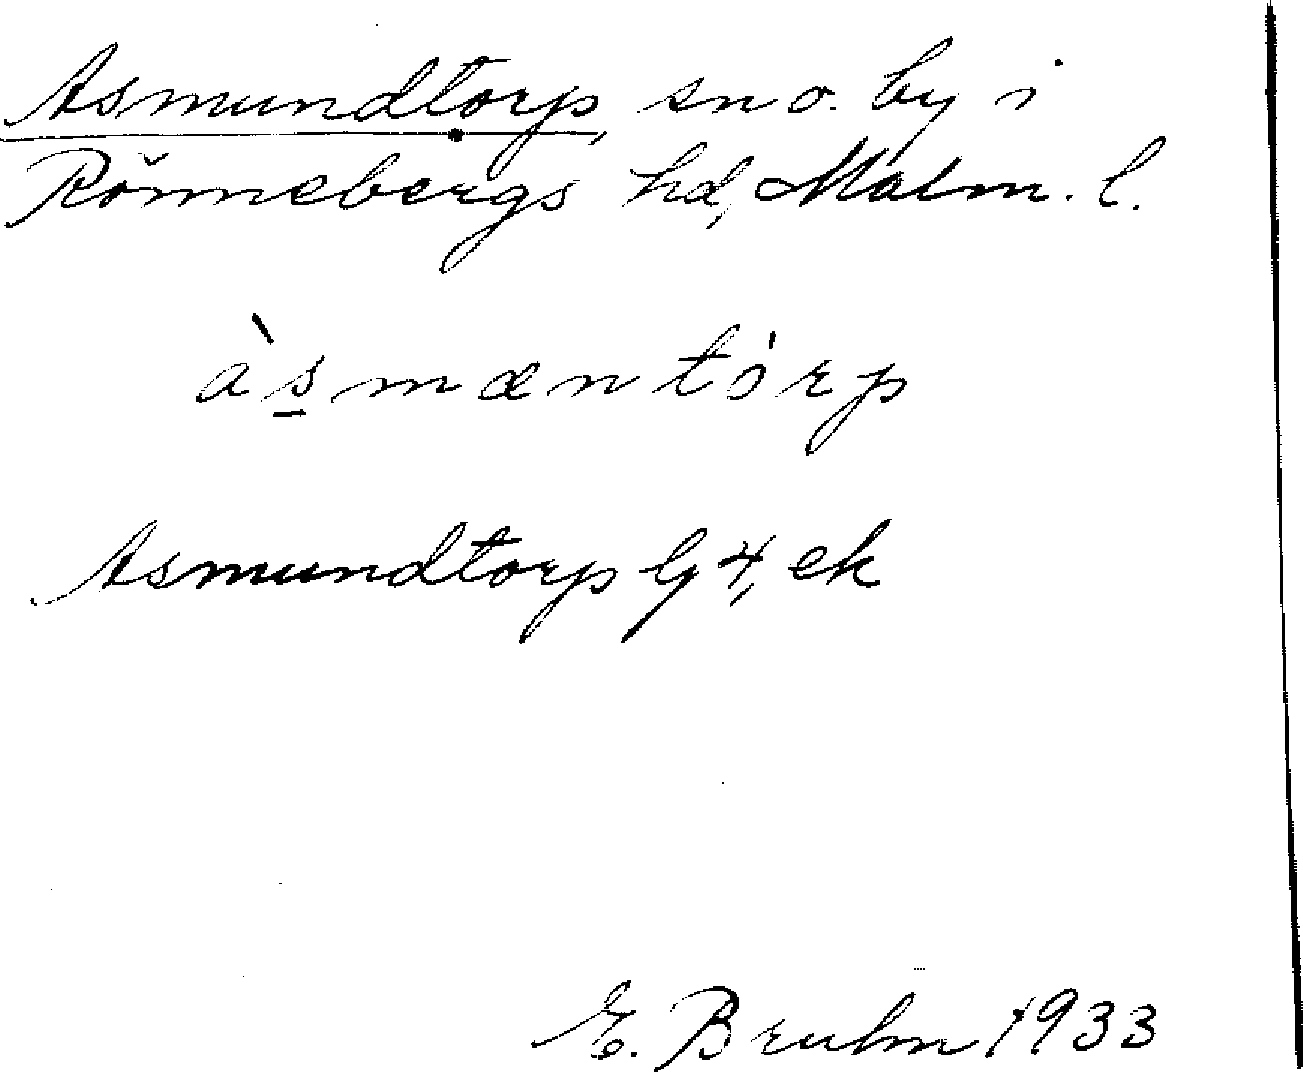 Asmundtorp, sn o. by i
Rönnebergs hd, Malm. l.
às̲mæntórp
Asmundtorp G 4, ek
E. Bruhn 1933